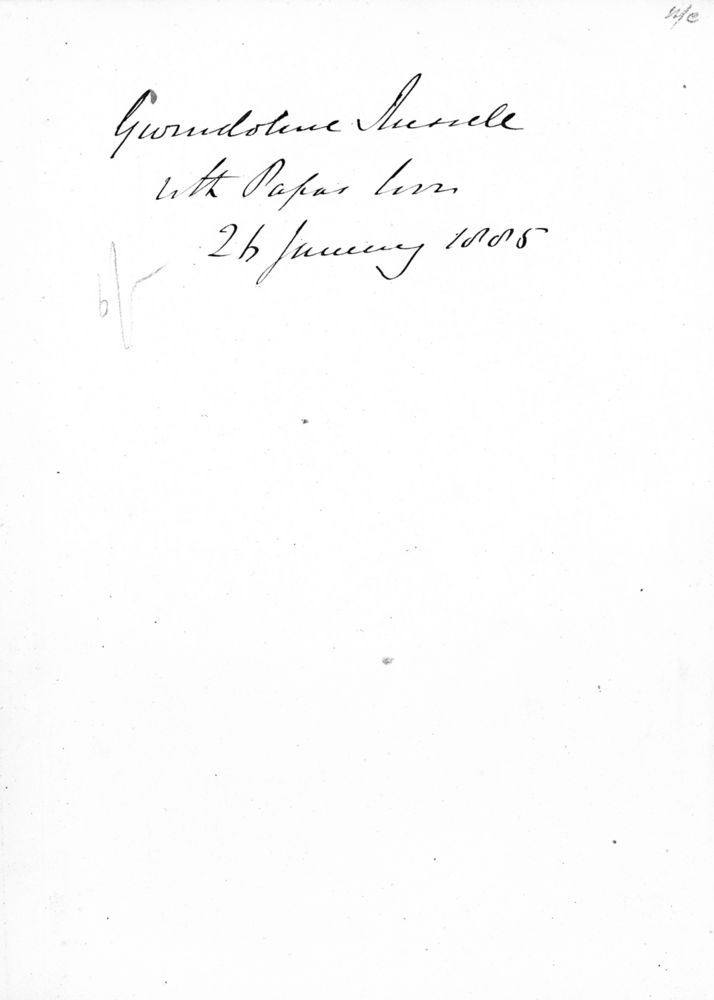 n/c
Gwendoline Russell
with Papas love
26 January 1885
6/-